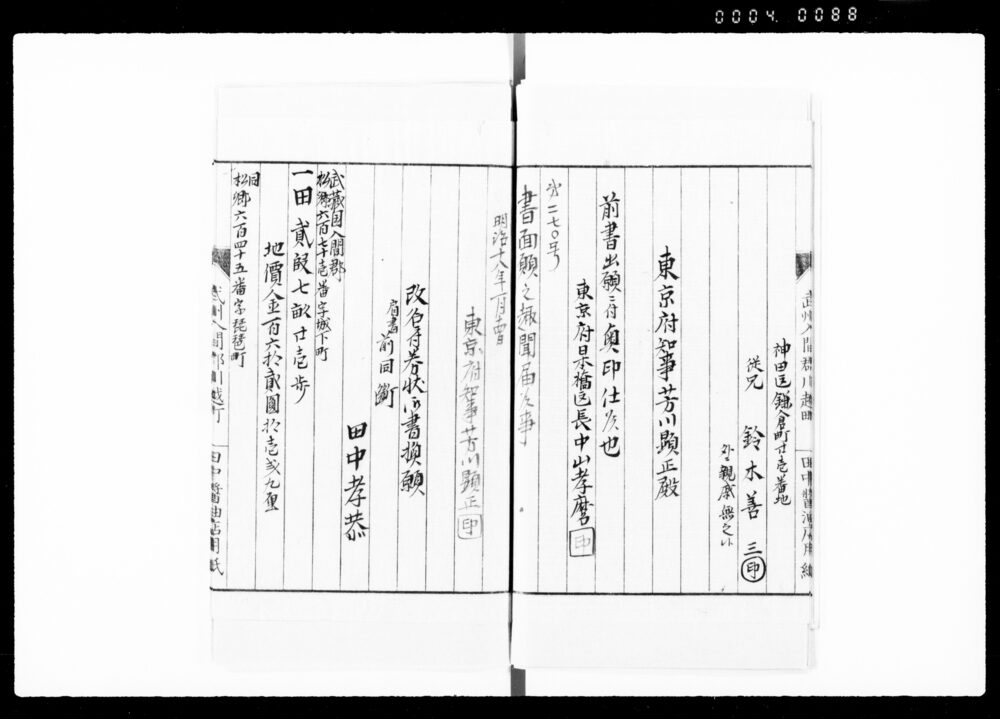 0004 0088
武州入間郡川越町 田中醤油店用紙
神田区鎌倉町廿壱番地
従兄 鈴木善三 印
外ニ親戚無之候
東京府知事芳川顕正殿
前書出願ニ付奥印仕候也
東京府日本橋区長中山孝麿 印
第二七〇号
書面願之趣聞届候事
明治十八年一月十四日
東京府知事芳川顕正 印
改名ニ付券状御書換願
肩書前同断
田中孝恭
武蔵国入間郡
松郷六百七十壱番字城下町
一田貳段七畝廿壱歩
地價金百六拾貳圓拾壱銭九厘
同
松郷六百四十五番字琵琶町
武州入間郡川越町 田中醤油店用紙